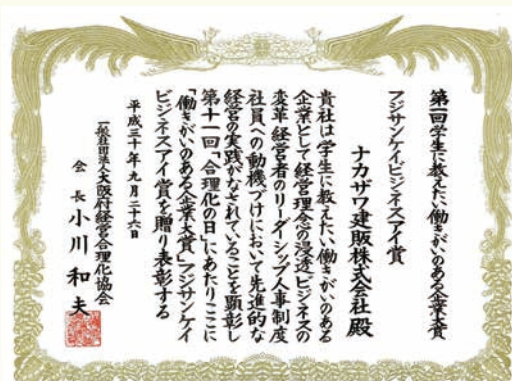 第一回学生に教えたい働きがいのある企業大賞
フジサンケイビジネスアイ賞
ナカザワ建販株式会社 殿
貴社は学生に教えたい働きがいのある
企業として経営理念の浸透、ビジネスの
変革、経営者のリーダーシップ、人事制度
社員への動機づけにおいて先進的な
経営の実践がなされていることを顕彰し
第十一回「合理化の日」にあたりここに
「働きがいのある企業大賞」フジサンケイ
ビジネスアイ賞を贈り表彰する
平成三十年九月二十六日
一般社団法人大阪府経営合理化協会
会長 小川和夫